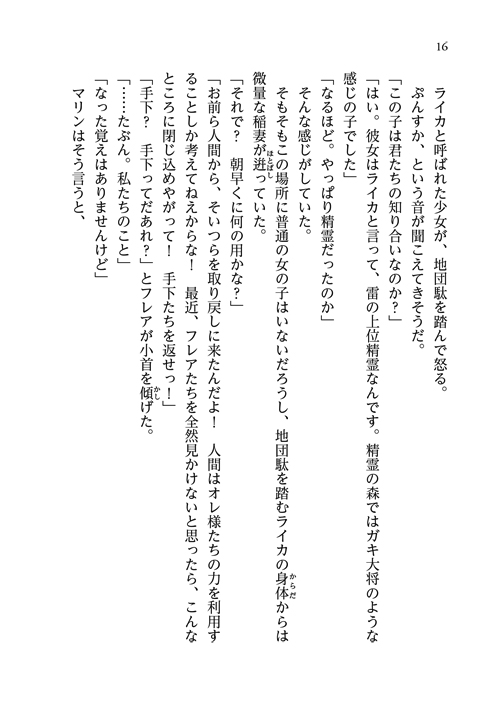 16
ライカと呼ばれた少女が、地団駄を踏んで怒る。
ぷんすか、という音が聞こえてきそうだ。
「この子は君たちの知り合いなのか？」
「はい。彼女はライカと言って、雷の上位精霊なんです。精霊の森ではガキ大将のような
感じの子でした」
「なるほど。やっぱり精霊だったのか」
そんな感じがしていた。
そもそもこの場所に普通の女の子はいないだろうし、地団駄を踏むライカの身体からは
微量な稲妻が迸っていた。
「それで？　朝早くに何の用かな？」
「お前ら人間から、そいつらを取り戻しに来たんだよ！　人間はオレ様たちの力を利用す
ることしか考えてねえからな！　最近、フレアたちを全然見かけないと思ったら、こんな
ところに閉じ込めやがって！　手下たちを返せっ！」
「手下？　手下ってだあれ？」とフレアが小首を傾げた。
「……たぶん。私たちのこと」
「なった覚えはありませんけど」
マリンはそう言うと、
からだ
ほとばし
かし